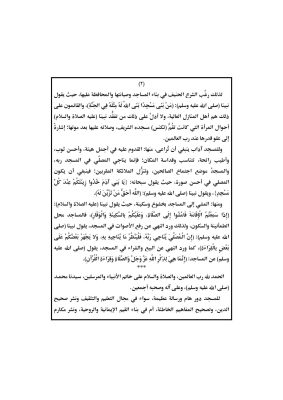 (٢)
لذلك رغَّب الشرع الحنيف في بناء المساجد وصيانتها والمحافظة عليها، حيث يقول
نبينا (صلى الله عليه وسلم): (مَنْ بَنَى مَسْجِدًا بَنَى اللهُ لَهُ مِثْلَهُ فِي الْجَنَّةِ)، والقائمون على
ذلك هم أهل المنازل العالية، ولا أدلَّ على ذلك من تفقُّد نبينا (عليه الصلاة والسلام)
أحوال المرأة التي كانت تَقُمُّ (تكنس) مسجده الشريف، وصلاته عليها بعد موتها؛ إشارةً
إلى علو قدرها عند رب العالمين.
وللمسجد آداب ينبغي أن تُراعى، منها: القدوم عليه في أجمل هيئة، وأحسن ثوب،
وأطيب رائحة، تتناسب وقداسة المكان؛ فإنما يناجي المصلِّي في المسجد ربه،
والمسجدُ موضع اجتماع الصالحين، وتنزُّل الملائكة المقربين؛ فينبغي أن يكون
المصلي في أحسن صورة، حيث يقول سبحانه: {يَا بَنِي آدَمَ خُذُوا زِينَتَكُمْ عِنْدَ كُلِّ
مَسْجِدٍ}، ويقول النبي (صلى الله عليه وسلم): (اللهُ أَحَقُّ مَنْ تُزُيِّنَ لَهُ).
ومنها: المشي إلى المساجد بخشوع وسكينة، حيث يقول نبينا (عليه الصلاة والسلام):
(إِذَا سَمِعْتُمُ الإِقَامَةَ فَامْشُوا إِلَى الصَّلَاةِ، وَعَلَيْكُمْ بِالسَّكِينَةِ وَالْوَقَارِ)، فالمساجد محل
الطمأنينة والسكون، ولذلك ورد النهي عن رفع الأصوات في المسجد، يقول نبينا (صلى
الله عليه وسلم): (إِنَّ الْمُصَلِّيَ يُنَاجِي رَبَّهُ، فَلْيَنْظُرْ مَا يُنَاجِيهِ بِهِ، وَلَا يَجْهَرْ بَعْضُكُمْ عَلَى
بَعْضٍ بِالْقِرَاءَةِ)، كما ورد النهي عن البيع والشراء في المسجد، يقول (صلى الله عليه
وسلم) عن المساجد: (إِنَّمَا هِيَ لِذِكْرِ اللهِ عَزَّ وَجَلَّ وَالصَّلَاةِ وَقِرَاءَةِ الْقُرْآنِ).
***
الحمد لله رب العالمين، والصلاة والسلام على خاتم الأنبياء والمرسلين، سيدنا محمد
(صلى الله عليه وسلم)، وعلى آله وصحبه أجمعين.
للمسجد دور هام ورسالة عظيمة، سواء في مجال التعليم والتثقيف ونشر صحيح
الدين، وتصحيح المفاهيم الخاطئة، أم في بناء القيم الإيمانية والروحية، ونشر مكارم